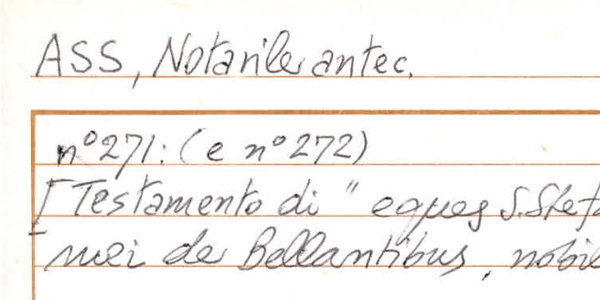 ASS, Notarile antec.
n° 271: (e n° 272)
[Testamento di "eques S. Stef
mei de Bellantibus, nobil